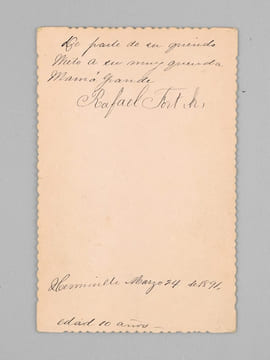 De parte de su querido
Nieto a su muy querida
Mamá Grande
Rafael Fort
Marzo 24 de 1891.
edad 10 años